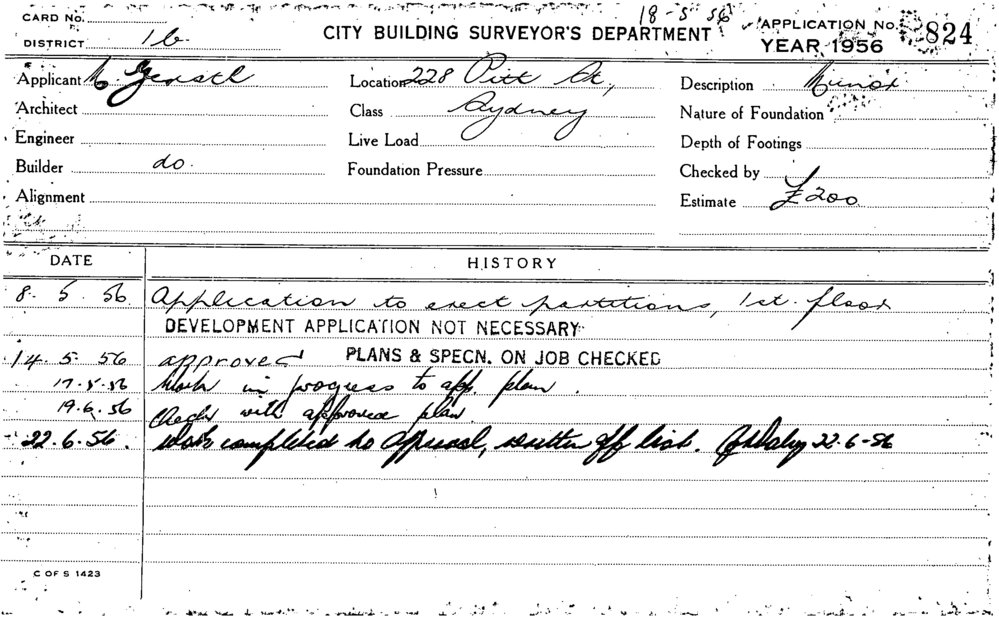 CARD No.
18-5-56
APPLICATION No. 824
DISTRICT 1b
CITY BUILDING SURVEYOR'S DEPARTMENT
YEAR 1956
Applicant Gerstl
Location 228 Pitt St,
Description Minor
Architect
Class Sydney
Nature of Foundation
Engineer
Live Load
Depth of Footings
Builder do.
Foundation Pressure
Checked by
Alignment
Estimate £200
DATE HISTORY
8. 5. 56 Application to erect partitions, 1st. floor
DEVELOPMENT APPLICATION NOT NECESSARY
14. 5. 56 approved PLANS & SPECN. ON JOB CHECKED
17. 5. 56 Work in progress to app. plan.
19. 6. 56 Check with approved plan
22. 6. 56. Work completed to approval, written off list. 22-6-56
C OF S 1423